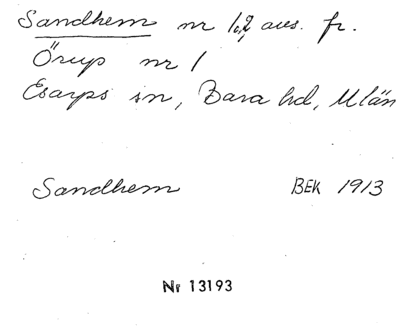 Sandhem nr 1,2 avs. fr.
Örup nr 1
Esarps sn, Bara hd, M län
Sandhem BEK 1913
Nr 13193